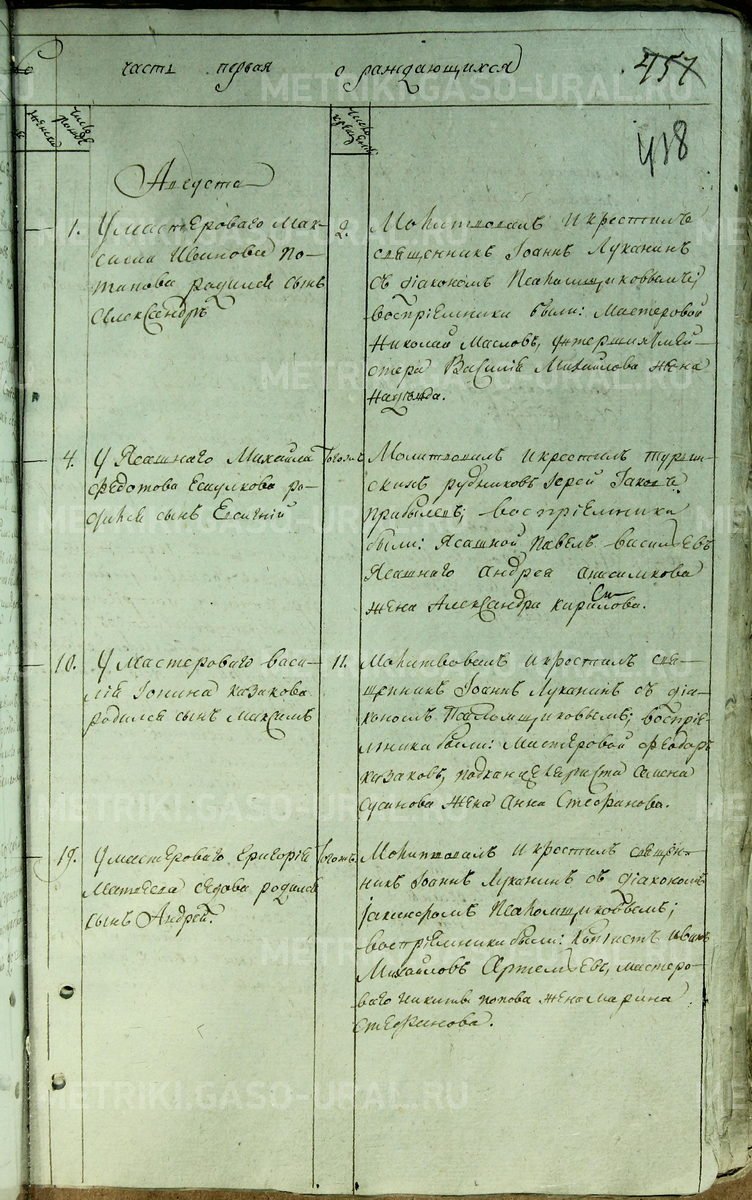 часть первая о раждающихся
457
418
женска
число рожде
число крещ
Августа
1. У мастероваго Мак-
сима Иванова По-
тапова родился сынъ
Александръ
2. Молитвовалъ и крестилъ
священникъ Іоаннъ Луканинъ
съ діакономъ
воспріемники были: Мастеровой
Николай Масловъ, унтершихтмей-
стера Василія Михайлова жена
4. У Ясашнаго Михайла
Федотова родился сынъ Евгеній
тогожъ
Молитвовалъ и крестилъ турьин-
скихъ рудниковъ Іерей Іаковъ
воспріемники
были: Ясашной Павелъ Васильевъ
Ясашнаго Андрея Анисимкова
жена Александра Кирилова.
10. У Мастероваго Васи-
лія Іонина Казакова
родился сынъ Максимъ
11. Молитвовалъ и крестилъ свя-
щенникъ Іоаннъ Луканинъ съ діа-
кономъ Паломщиковымъ; воспріе-
мники были: Мастеровой Феодоръ
Казаковъ, подканцеляриста Семена
Сусанова жена Анна Стефанова.
19. У мастероваго Григорія
Матвеева Седова родился
сынъ Андрей.
тогожъ
Молитвовалъ и крестилъ священ-
никъ Іоаннъ Луканинъ съ діакономъ
воспріемники были: Копіистъ Иванъ
Михайловъ Артемьевъ, мастеро-
ваго Никиты Попова жена Марина
Стефанова.
METRIKI.GASO-URAL.RU